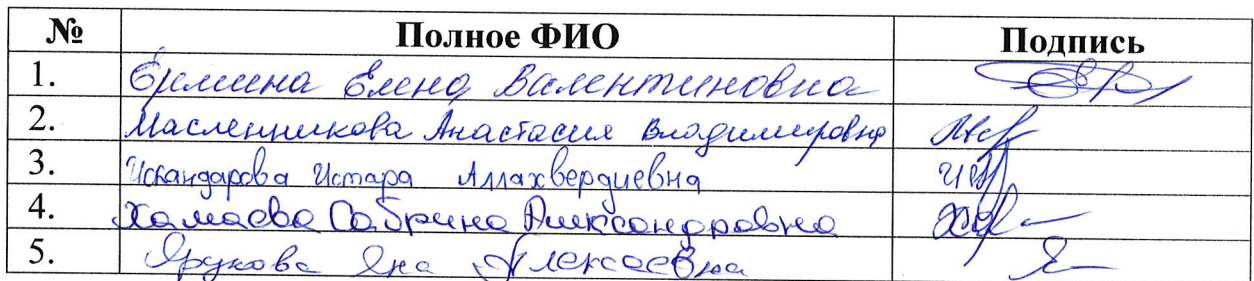 № Полное ФИО Подпись
1. Елена Валентиновна
2. Масленникова Анастасия Владимировна
3. Искандарова Истара Аллахвердиевна
4. Хамаева Сабрина Александровна
5. Яна Алексеевна